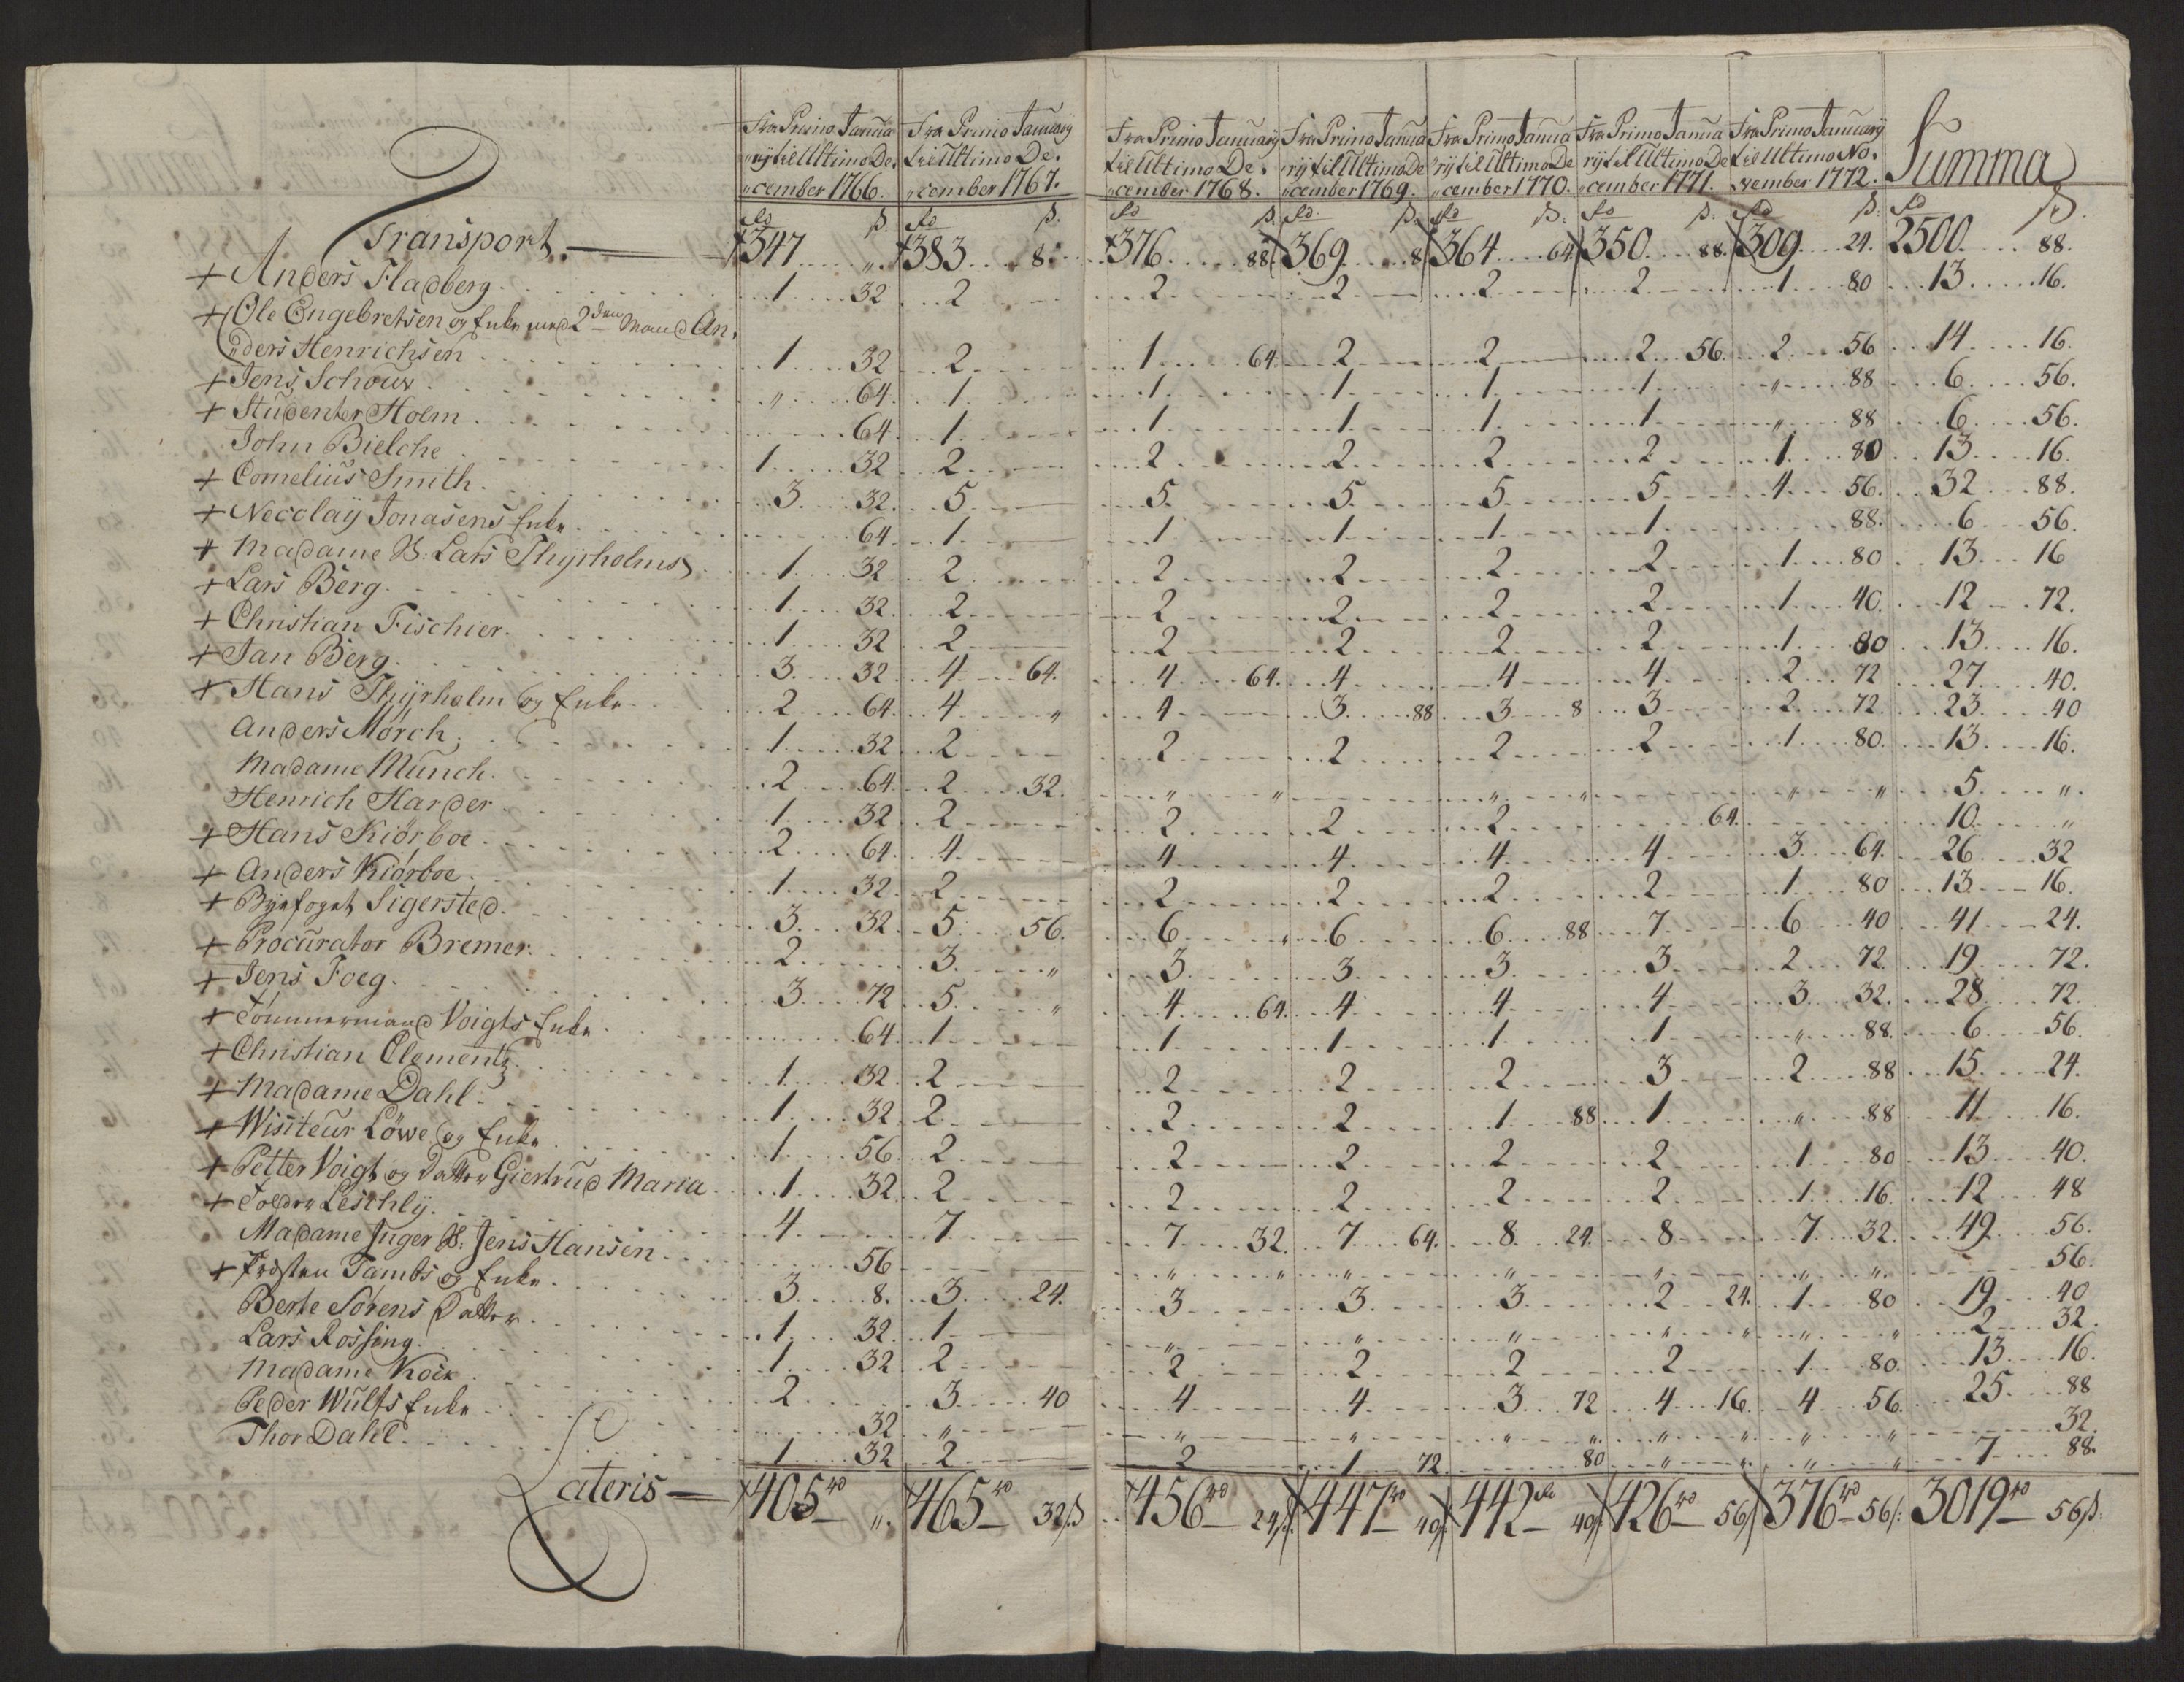 Fra Primo Janua Fra Primo January Fra Primo January Fra Primo Janua Fra Primo Janua Fra Primo Janua Fra Primo January Summa
rij til Ultimo De. til Ultimo De. til Ultimo De. rij til Ultimo De rij til Ultimo De rij til Ultimo De til Ultimo No.
cember 1766. cember 1767. cember 1768. cember 1769. cember 1770. cember 1771. vember 1772.
Transport. 347 „ 383 8 376 88 369 8 364 64 350 88 309 24. 2500 88.
+ Anders Fladberg 1 32 2 2 2 2 2 1 80 13 16.
+ Ole Engebretsen og Enke med 2den Mand An,
ders Henrichsen 1 32 2 1 64 2 2 2 56 2 56 14 16.
+ Jens Schouw 64 1 1 1 1 1 „ 88 6 56.
+ Studenter Holm 64 1 1 1 1 1 „ 88 6 56.
John Bielche 1 32 2 2 2 2 2 1 80 13 16.
+ Cornelius Smith 3 32 5 5 5 5 5 4 56 32 88.
+ Necolaij Jonasens Enke 64 1 1 1 1 1 88 6 56.
+ Madame S: Lars Thyrholms 1 32 2 2 2 2 2 1 80 13 16
+ Lars Berg 1 32 2 2 2 2 2 1 40 12 72.
+ Christian Fischier 1 32 2 2 2 2 2 1 80 13 16.
+ Jan Berg 3 32 4 64 4 64 4 4 4 2 72 27 40.
+ Hans Thyrholm og Enke 2 64 4 „ 4 3 88 3 8 3 2 72 23 40
Anders Mørch 1 32 2 2 2 2 2 1 80 13 16.
Madame Munch 2 64 2 32 „ „ „ „ „ „ 5 „
Henrich Harder 1 32 2 2 2 2 64 10 „
+ Hans Kiørboe 2 64 4 4 4 4 4 3 64 26 32
+ Anders Kiørboe 1 32 2 2 2 2 2 1 80 13 16.
+ Byefoget Sigersted 3 32 5 56 6 „ 6 6 88 7 6 40 41 24.
+ Procurator Bremer 2 3 „ 3 3 3 3 2 72 19 72.
+ Jens Foeg 3 72 5 „ 4 64 4 4 4 3 32 28 72.
+ Tømmermand Voigts Enke 64 1 1 1 1 1 „ 88 6 56
+ Christian Clementz 1 32 2 2 2 2 3 2 88 15 24.
+ Madame Dahl 1 32 2 2 2 1 88 1 „ 88 11 16.
+ Wisiteur Löwe og Enke 1 56 2 2 2 2 2 1 80 13 40.
+ Petter Voigt og Datter Giertrud Maria 1 32 2 2 2 2 2 1 16 12 48
+ Tolder Leschly 4 7 7 32 7 64 8 24 8 7 32 49 56.
Madame Inger S: Jens Hansen 56 „ „ „ „ „ „ „ 56.
+ Tambs og Enke 3 8. 3 24 3 3 3 2 24 1 80 19 40
Berte Sørens Datter 1 32 1 „ „ „ „ „ „ „ 2 32.
Lars Rossing 1 32 2 2 2 2 2 1 80 13 16.
Madame Kock 2 3 40 4 4 3 72 4 16 4 56 25 88
Peder Wulfs Enke 32 „ „ „ „ „ „ „ „ „ 32.
Thor Dahl 1 32 2 2 1 72 80 „ „ „ „ 7 88.
Lateris 405 „ 465 32ß 456 24ß 447 40 442 40 426 56 376 56ß: 3019 56ß: